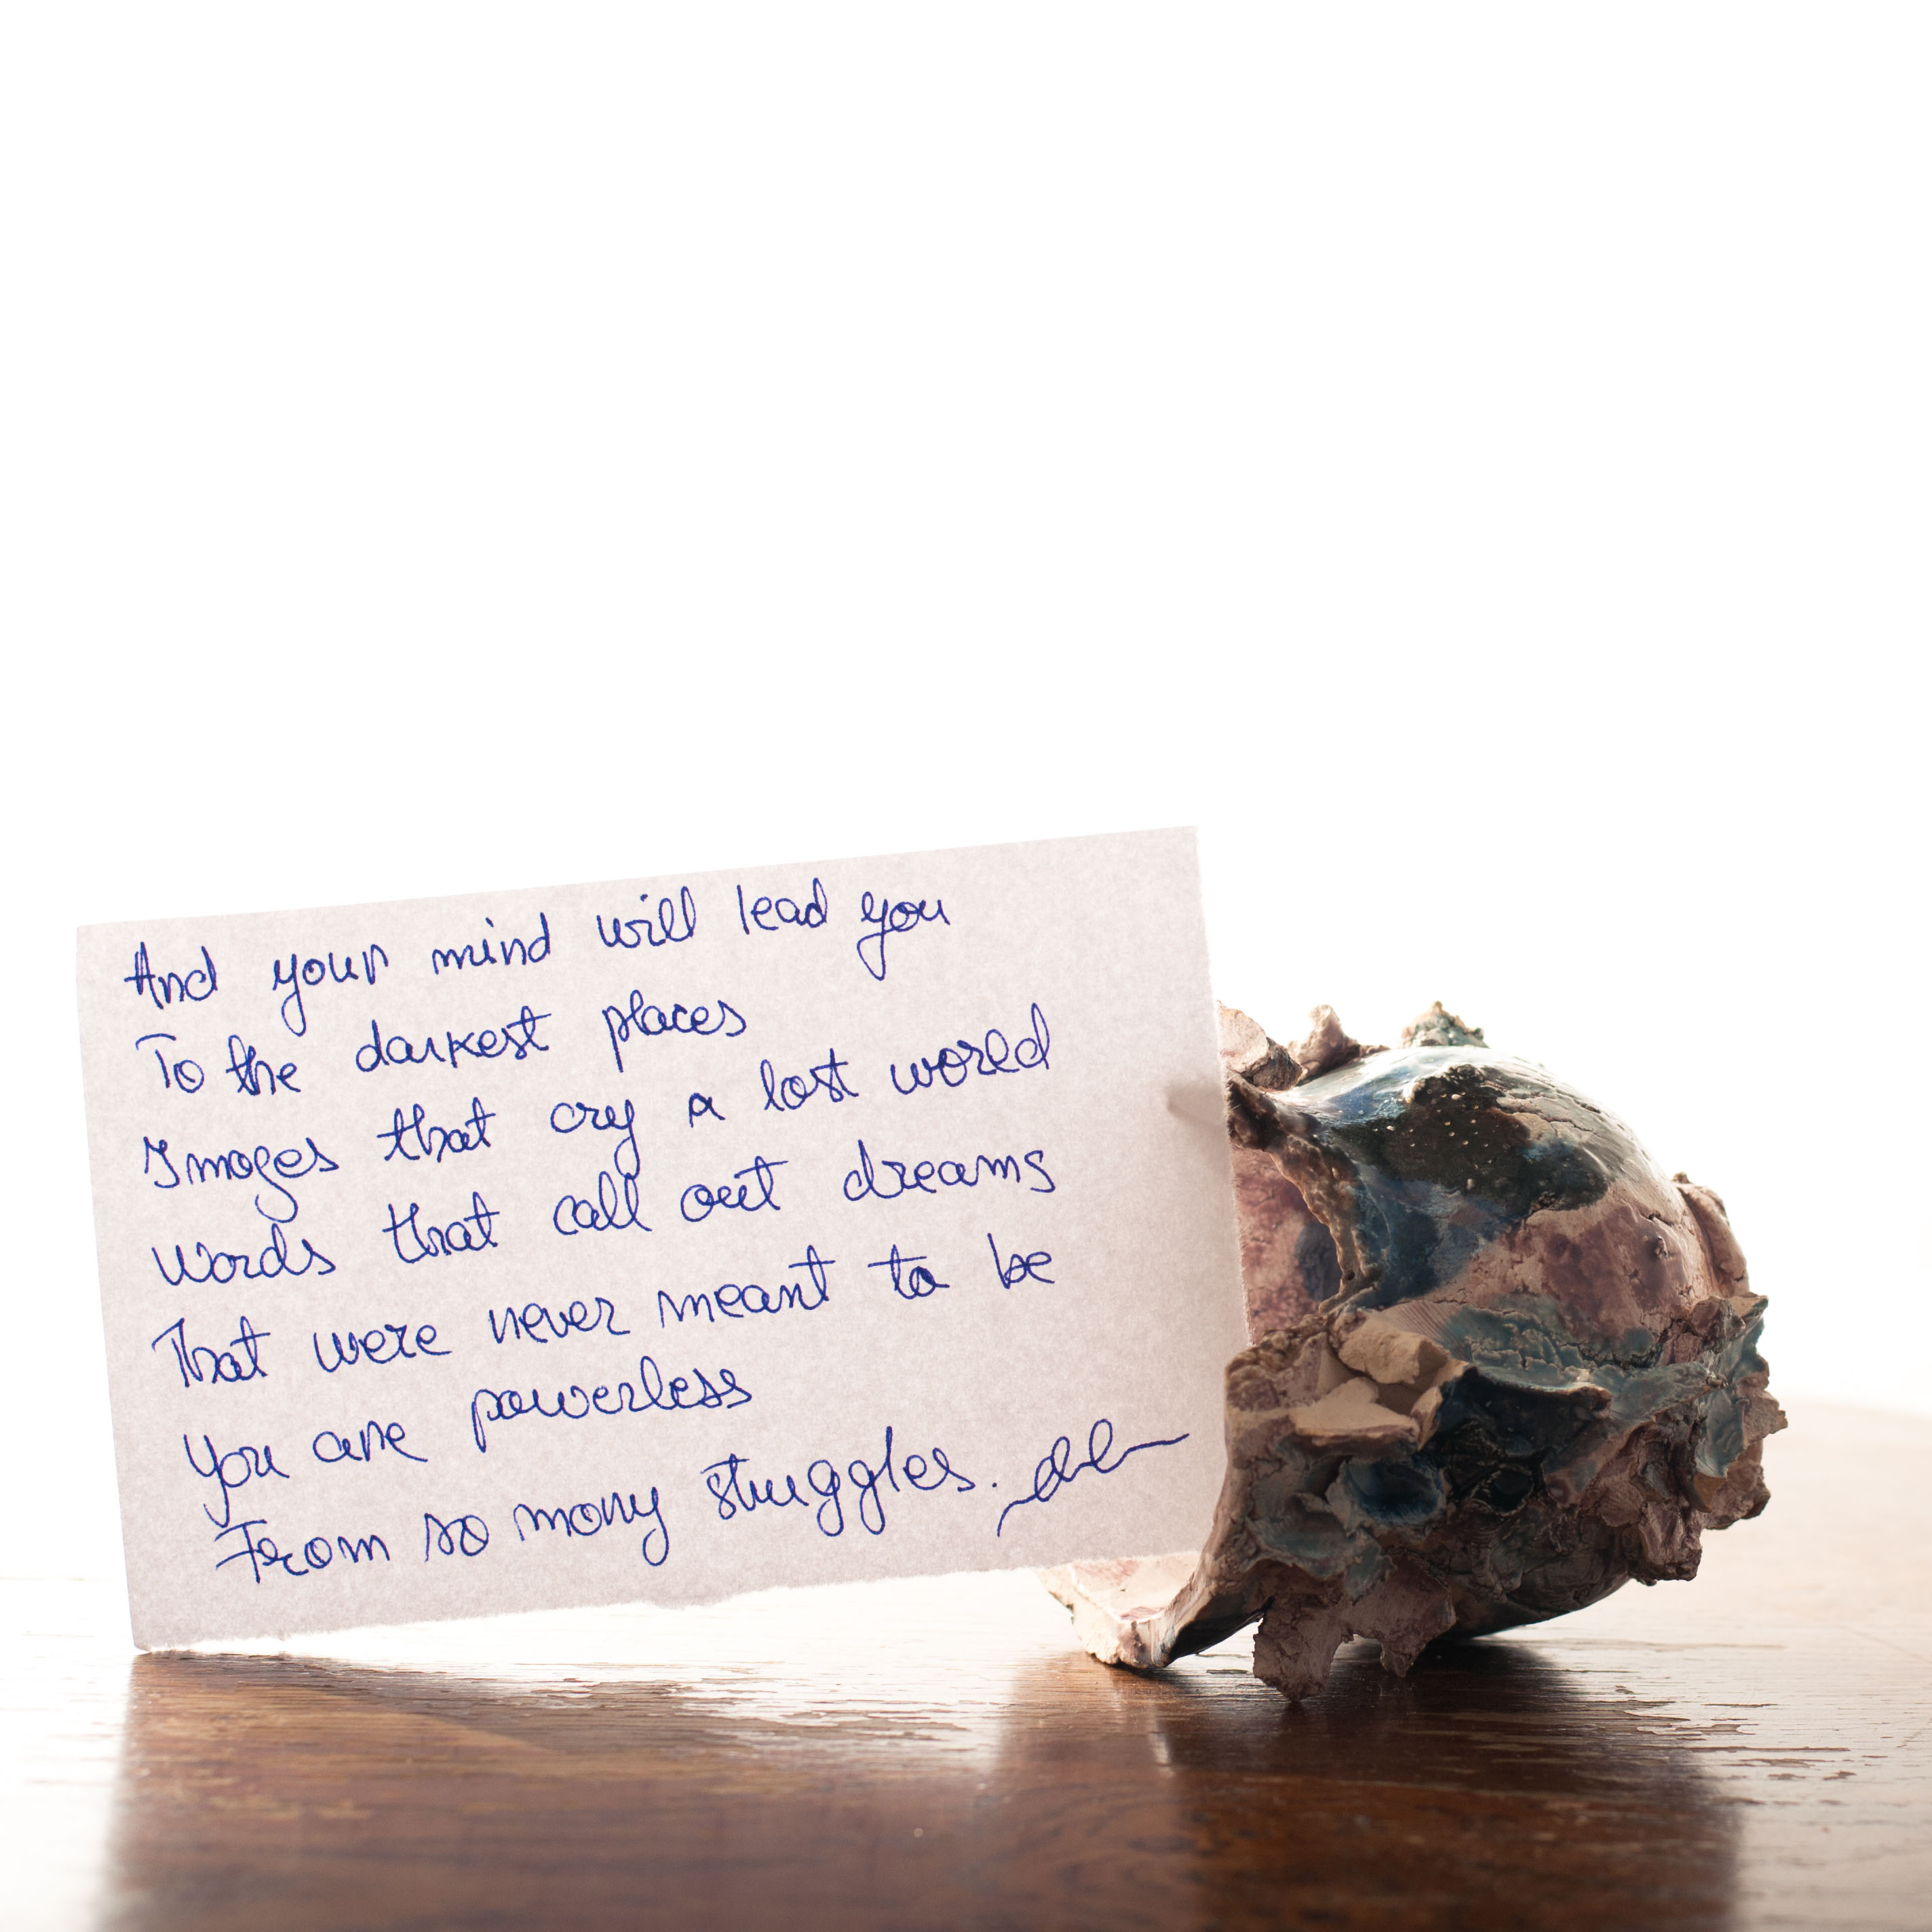 And your mind will lead you
To the darkest places
Images that cry a lost world
Words that call out dreams
That were never meant to be
You are powerless
From so many struggles.